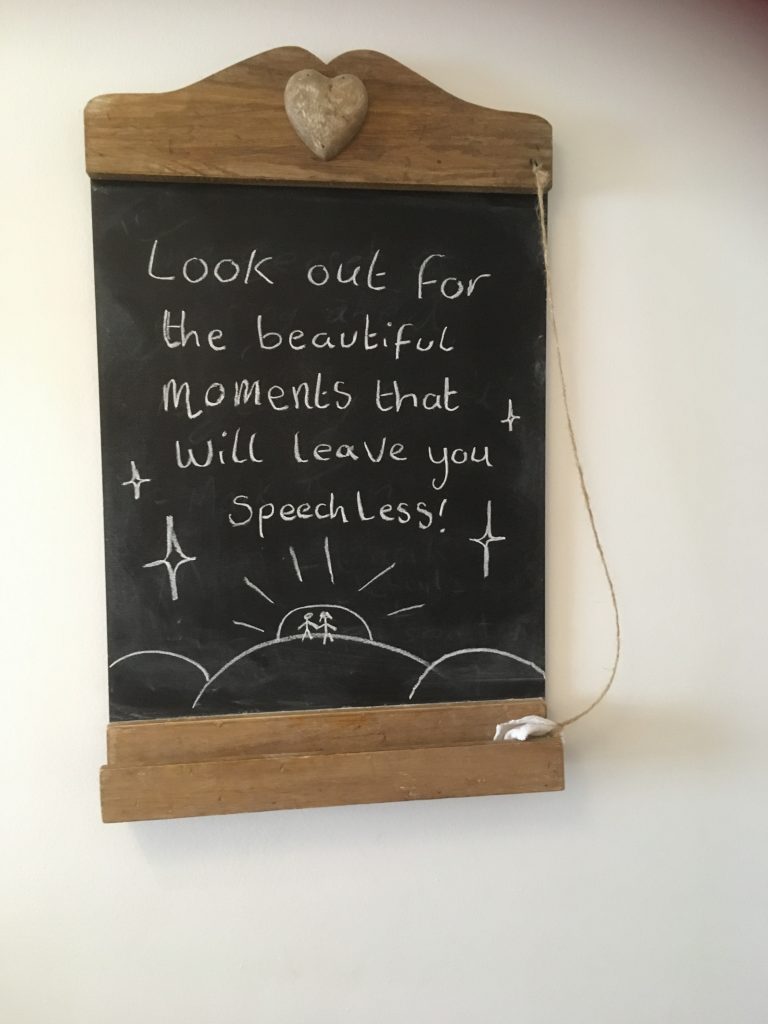 Look out for
the beautiful
moments that
will leave you
Speechless!